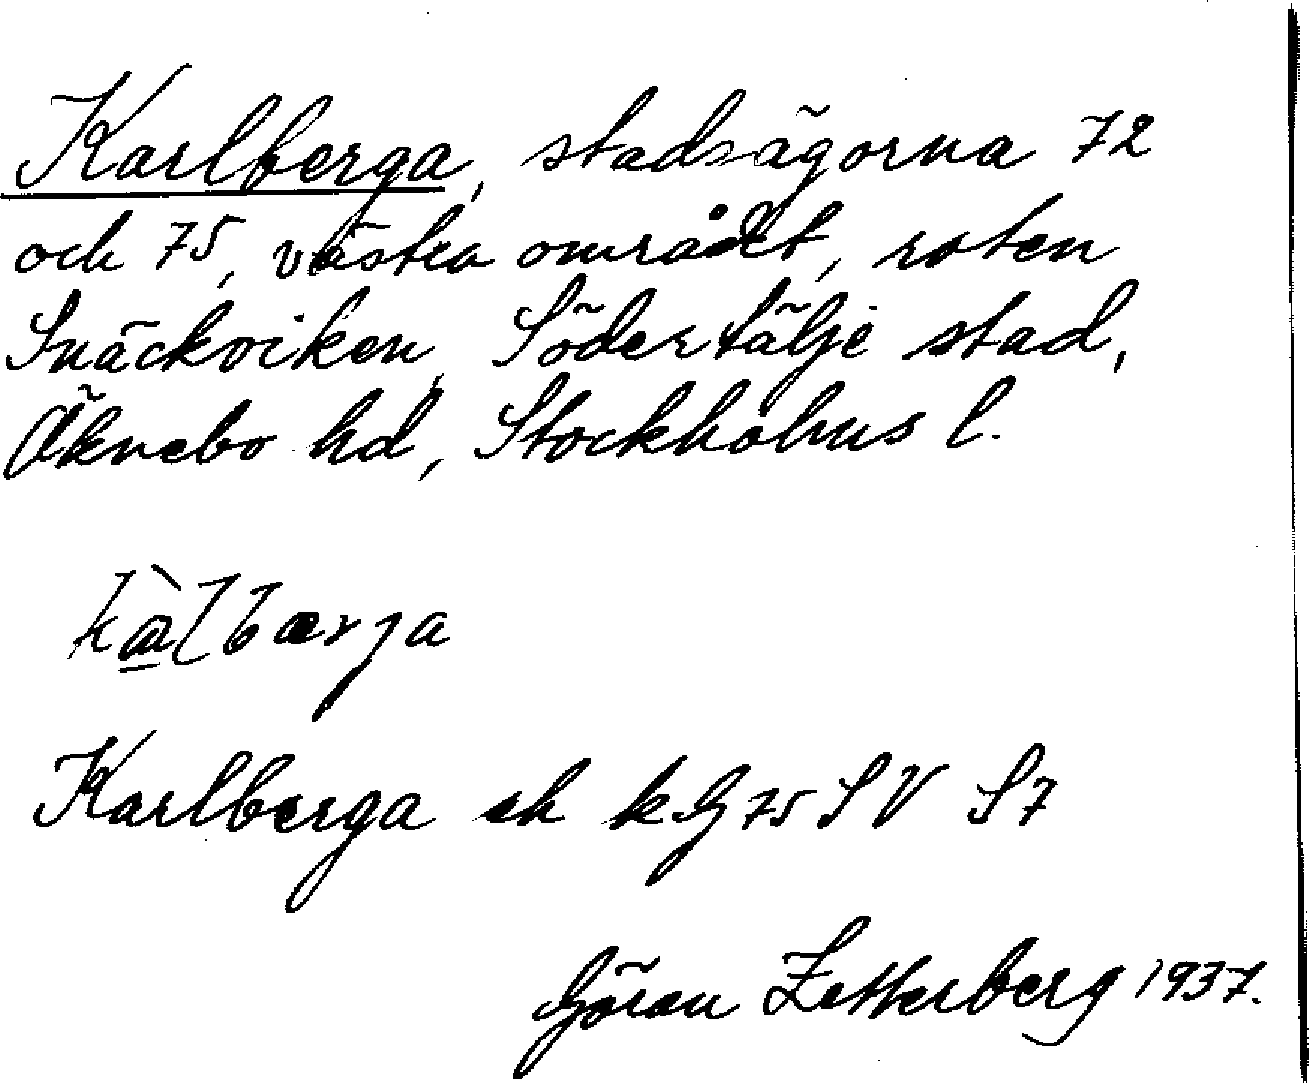 Karlberga, stadsägorna 72
och 75, västra området, roten
Snäckviken, Södertälje stad,
Öknebo hd, Stockholms l.
kà̱lbærja
Karlberga ek kG 75 SV S7
Göran Zetterberg 1937.